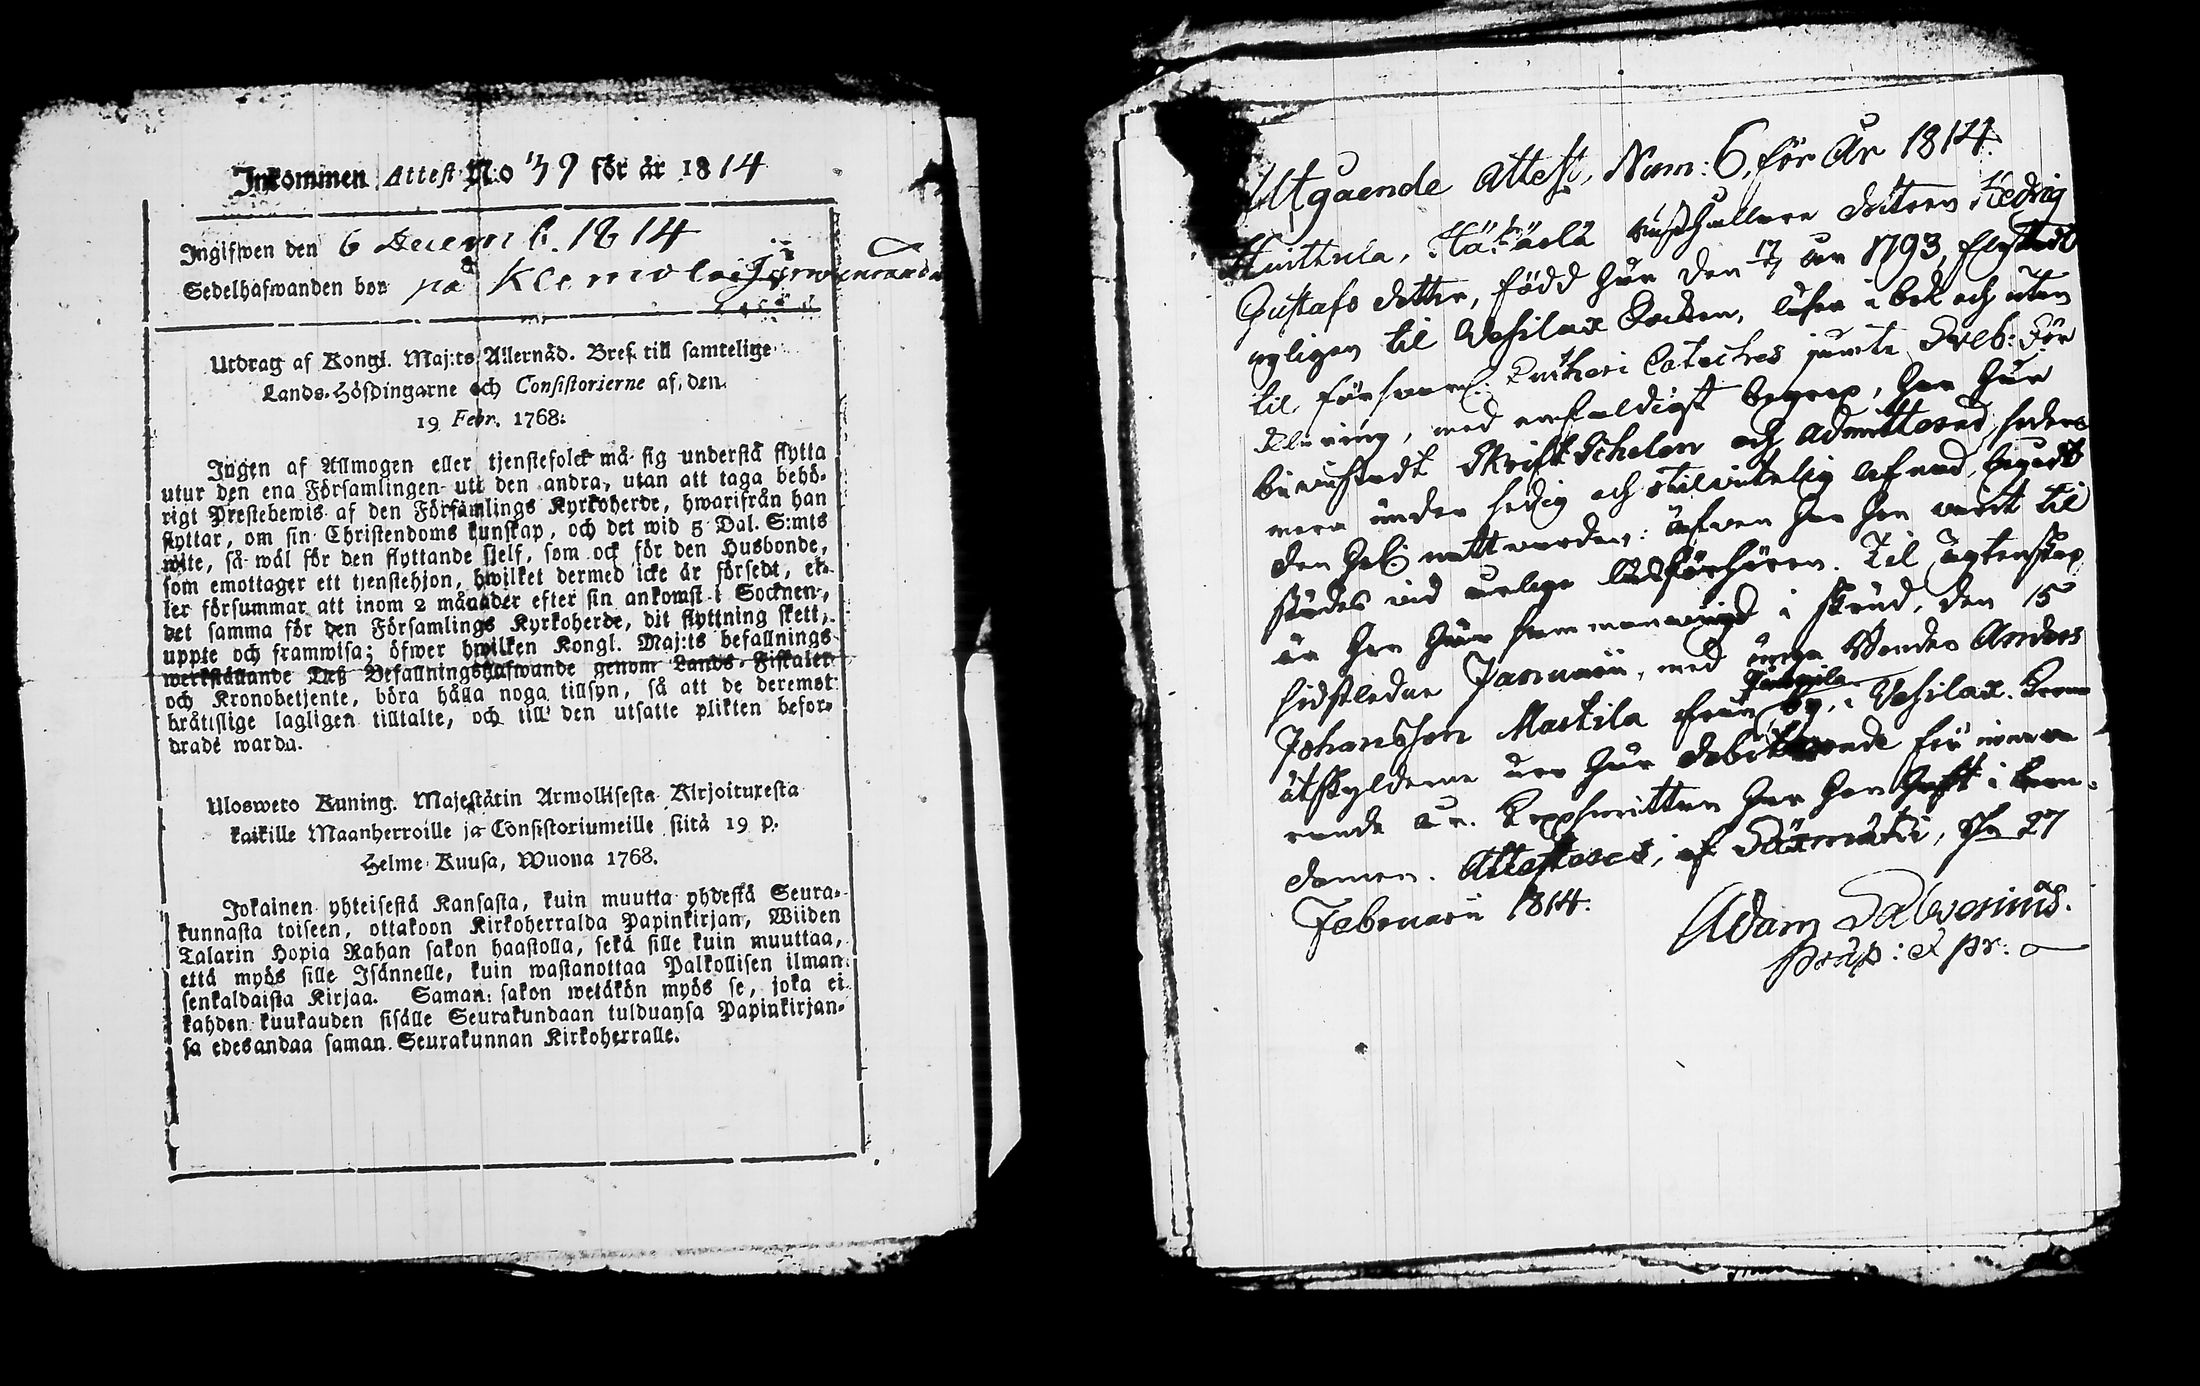 Inkommen Attest No 39 för år 1814
Ingifwen den 6 Decemb. 1814
Sedelhafwanden bor på Klemola i
Utdrag af Kongl. Maj:ts Allernåd. Bref till samtelige
Lands-Höfdingarne och Consistorierne af den
19 Febr. 1768.
Ingen af Allmogen eller tjenstefolck må sig understå flytta
utur den ena Församlingen uti den andra, utan att taga behö-
rigt Prestebewis af den Församlings Kyrkoherde, hwarifrån han
flyttar, om sin Christendoms kunskap, och det wid 5 Dal. S:mts
wite, så wäl för den flyttande sjelf, som ock för den Husbonde,
som emottager ett tjenstehjon, hwilket dermed icke är försedt, el-
ler försummar att inom 2 månader efter sin ankomst i Socknen,
det samma för den Församlings Kyrkoherde, dit flyttning skett,
uppte och framwisa; öfwer hwilken Kongl. Maj:ts befallnings
werkställande Deß Befallningshafwande genom Lands-Fiskaler
och Kronobetjente, böra hålla noga tillsyn, så att de deremot
brätislige lagligen tilltalte, och till den utsatte plikten befor-
drade warda.
Ulosweto Kuning. Majestätin Armollisesta Kirjoituxesta
kaikille Maanherroille ja Consistoriumeille siitä 19 p.
Helme Kuusa, Wuona 1768.
Jokainen yhteisestä Kansasta, kuin muutta yhdestä Seura-
kunnasta toiseen, ottakoon Kirkoherralda Papinkirjan, Wiiden
Talarin Hopia Rahan sakon haastolla, sekä sille kuin muuttaa,
että myös sille Isännelle, kuin wastanottaa Palkollisen ilman
senkaldaista Kirjaa. Saman sakon wetäkön myös se, joka ei
kahden kuukauden sisälle Seurakundaan tulduansa Papinkirjan-
sa edesandaa saman Seurakunnan Kirkoherralle.
Utgaende Attest, Num: 6, för År 1814.
Huittula, dottren Hedrig
Gustafs dotter, född har den 17/7 an 1793, flyttadt
ogligen til Vesilax Socken, läser i bok och utan
til försvarl: Lutheri Cateches jämte Sveb: För
klaring, med enfaldigt begrep, har har
bevistadt Skrift Scholen och admitterad, seder
mera under sedig och oklanderlig lefnad, begådt
den Hel: nattvarden: äfven har hon varit til
städes vid årlige Läsförhören. Til Ägtenskap
är hon här sammanvigd i stånd, den 15
sidstledne Januarii, med unga Bonden Anders
Johansson Mastila från by, i Vesilax. Krono
utskylderne äro här debiterade för inneva
rande år. Koppsmittan har hon haft i barn-
domen. Attesteres, af Säxmäki, d. 27
Februarii 1814.
Adam Salvenius.
Præp: & Pr: